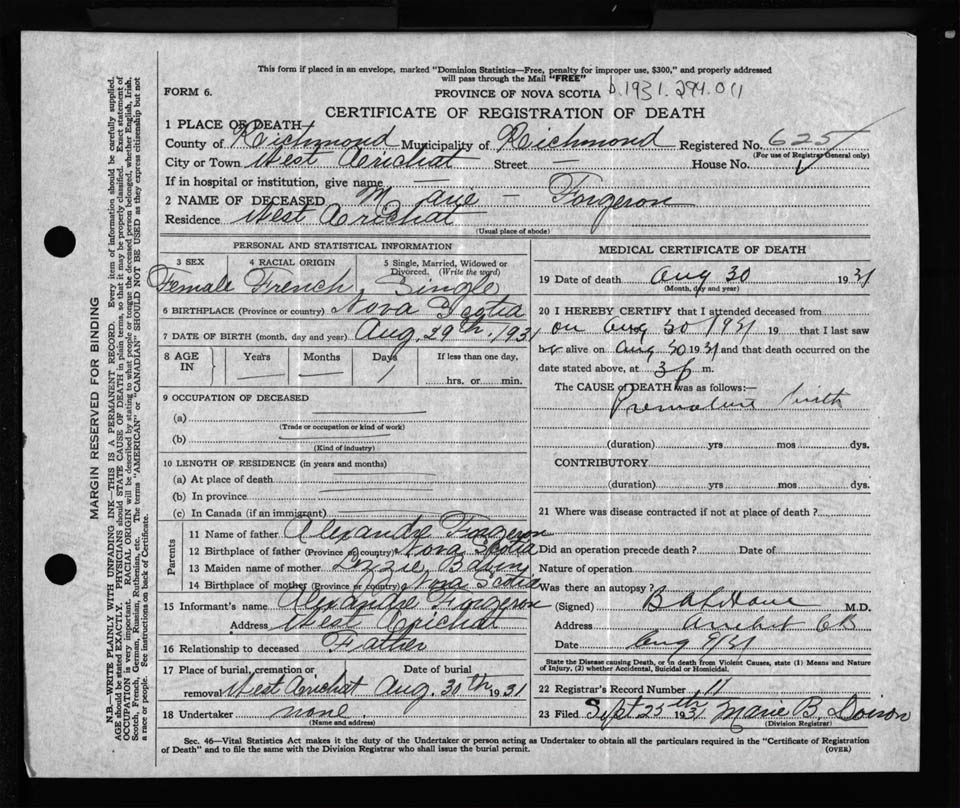 This form if placed in an envelope, marked "Dominion Statistics—Free, penalty for improper use, $300," and properly addressed
will pass through the Mail "FREE"
FORM 6.
PROVINCE OF NOVA SCOTIA b.1931.294.011
CERTIFICATE OF REGISTRATION OF DEATH
1 PLACE OF DEATH—
County of Richmond Municipality of Richmond Registered No. 625
(For use of Registrar General only)
City or Town West Arichat Street — House No.
If in hospital or institution, give name —
2 NAME OF DECEASED Marie — Forgeron
Residence West Arichat
(Usual place of abode)
PERSONAL AND STATISTICAL INFORMATION
3 SEX 4 RACIAL ORIGIN 5 Single, Married, Widowed or Divorced. (Write the word)
Female French Single
6 BIRTHPLACE (Province or country) Nova Scotia
7 DATE OF BIRTH (month, day and year) Aug. 29th, 1931
8 AGE IN Years — Months — Days 1 If less than one day,
hrs. or min.
9 OCCUPATION OF DECEASED
(a)
(Trade or occupation or kind of work)
(b)
(Kind of industry)
10 LENGTH OF RESIDENCE (in years and months)
(a) At place of death
(b) In province
(c) In Canada (if an immigrant)
Parents
11 Name of father Alexandre Forgeron
12 Birthplace of father (Province or country) Nova Scotia
13 Maiden name of mother Lizzie
14 Birthplace of mother (Province or country) Nova Scotia
15 Informant's name Alexandre Forgeron
Address West Arichat
16 Relationship to deceased Father
17 Place of burial, cremation or removal West Arichat Date of burial Aug. 30th 1931
18 Undertaker none
(Name and address)
MEDICAL CERTIFICATE OF DEATH
19 Date of death Aug 30 1931
(Month, day and year)
20 I HEREBY CERTIFY that I attended deceased from
on Aug 30 1931 19 that I last saw
her alive on Aug 30 1931 and that death occurred on the
date stated above, at 3 p m.
The CAUSE of DEATH was as follows:—
Premature birth
(duration) yrs mos dys.
CONTRIBUTORY
(duration) yrs mos dys.
21 Where was disease contracted if not at place of death?
Did an operation precede death? Date of
Nature of operation
Was there an autopsy?
(Signed) M.D.
Address Arichat CB
Date Aug 31
State the Disease causing Death, or in death from Violent Causes, state (1) Means and Nature
of Injury, (2) whether Accidental, Suicidal or Homicidal.
22 Registrar's Record Number 11
23 Filed Sept 25th 1931 Marie B. Doison
(Division Registrar)
Sec. 46—Vital Statistics Act makes it the duty of the Undertaker or person acting as Undertaker to obtain all the particulars required in the "Certificate of Registration
of Death" and to file the same with the Division Registrar who shall issue the burial permit.
(OVER)
MARGIN RESERVED FOR BINDING
N.B.—WRITE PLAINLY WITH UNFADING INK—THIS IS A PERMANENT RECORD. Every item of information should be carefully supplied.
AGE should be stated EXACTLY. PHYSICIANS should STATE CAUSE OF DEATH in plain terms, so that it may be properly classified. Exact statement of
OCCUPATION is very important. RACIAL ORIGIN will be described by stating to what people or tongue the deceased person belonged, whether English, Irish,
Scotch, French, German, Russian, Ruthenian, etc. The terms "AMERICAN" or "CANADIAN" SHOULD NOT BE USED as they express citizenship but not
a race or people. See instructions on back of Certificate.